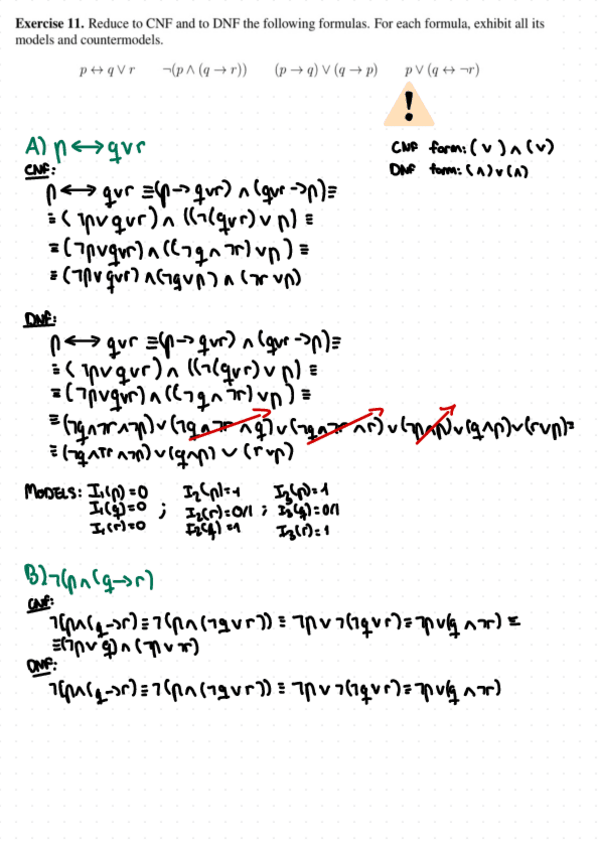 Exercise 11. Reduce to CNF and to DNF the following formulas. For each formula, exhibit all its
models and countermodels.
p ↔ q ∨ r   ¬(p ∧ (q → r))   (p → q) ∨ (q → p)   p ∨ (q ↔ ¬r)
!
A) p ↔ q∨r
CNF form: ( ∨ ) ∧ ( ∨ )
DNF form: ( ∧ ) ∨ ( ∧ )
CNF:
p ↔ q∨r ≡ (p → q∨r) ∧ (q∨r → p) ≡
≡ (¬p∨q∨r) ∧ ((¬(q∨r) ∨ p) ≡
≡ (¬p∨q∨r) ∧ ((¬q ∧ ¬r) ∨ p) ≡
≡ (¬p∨q∨r) ∧ (¬q∨p) ∧ (¬r ∨p)
DNF:
p ↔ q∨r ≡ (p → q∨r) ∧ (q∨r → p) ≡
≡ (¬p∨q∨r) ∧ ((¬(q∨r) ∨ p) ≡
≡ (¬p∨q∨r) ∧ ((¬q ∧ ¬r) ∨ p) ≡
≡ (¬q∧¬r∧¬p) ∨ (¬q∧¬r∧q) ∨ (¬q∧¬r∧r) ∨ (¬p∧p) ∨ (q∧p) ∨ (r∨p) ≡
≡ (¬q∧¬r∧¬p) ∨ (q∧p) ∨ (r∨p)
MODELS: I₁(p) = 0   I₂(p) = 1   I₃(p) = 1
I₁(q) = 0 ; I₂(r) = 0/1 ; I₃(q) = 0/1
I₁(r) = 0   I₂(q) = 1   I₃(r) = 1
B) ¬(p∧(q→r)
CNF:
¬(p∧(q→r) ≡ ¬(p∧(¬q∨r)) ≡ ¬p∨¬(¬q∨r) ≡ ¬p∨(q∧¬r) ≡
≡ (¬p∨q) ∧ (¬p∨¬r)
DNF:
¬(p∧(q→r) ≡ ¬(p∧(¬q∨r)) ≡ ¬p∨¬(¬q∨r) ≡ ¬p∨(q∧¬r)